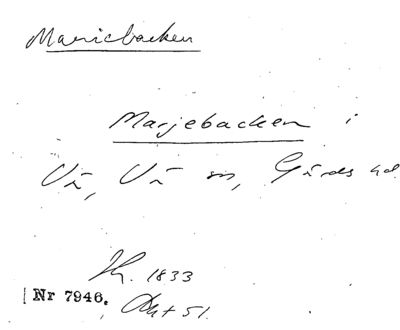 Mariebacken
Marjebacken i
Vä, Vä sn, Gärds hd.
1833
Nr 7946. Akt 51.